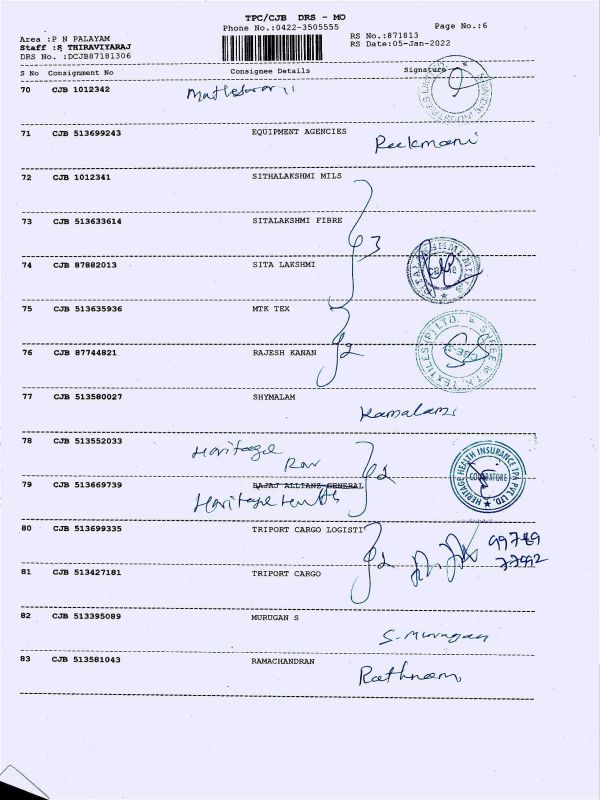 TPC/CJB DRS - MO
Phone No.:0422-3505555
Page No.:6
Area :P N PALAYAM
RS No.:871813
Staff : THIRAVIYARAJ
RS Date:05-Jan-2022
DRS No. :DCJB87181306
S No Consignment No Consignee Details Signature
70 CJB 1012342
71 CJB 513699243 EQUIPMENT AGENCIES
72 CJB 1012341 SITHALAKSHMI MILS
73 CJB 513633614 SITALAKSHMI FIBRE
74 CJB 87882013 SITA LAKSHMI
75 CJB 513635936 MTK TEX
76 CJB 87744821 RAJESH KANAN
77 CJB 513580027 SHYMALAM
78 CJB 513552033 Heritage
79 CJB 513669739 BAJAJ ALLIANZ GENERAL
HERITAGE HEALTH INSURANCE TPA PVT. LTD.
80 CJB 513699335 TRIPORT CARGO LOGISTI
81 CJB 513427181 TRIPORT CARGO
82 CJB 513395089 MURUGAN S
S. Murugan
83 CJB 513581043 RAMACHANDRAN
Rathnam